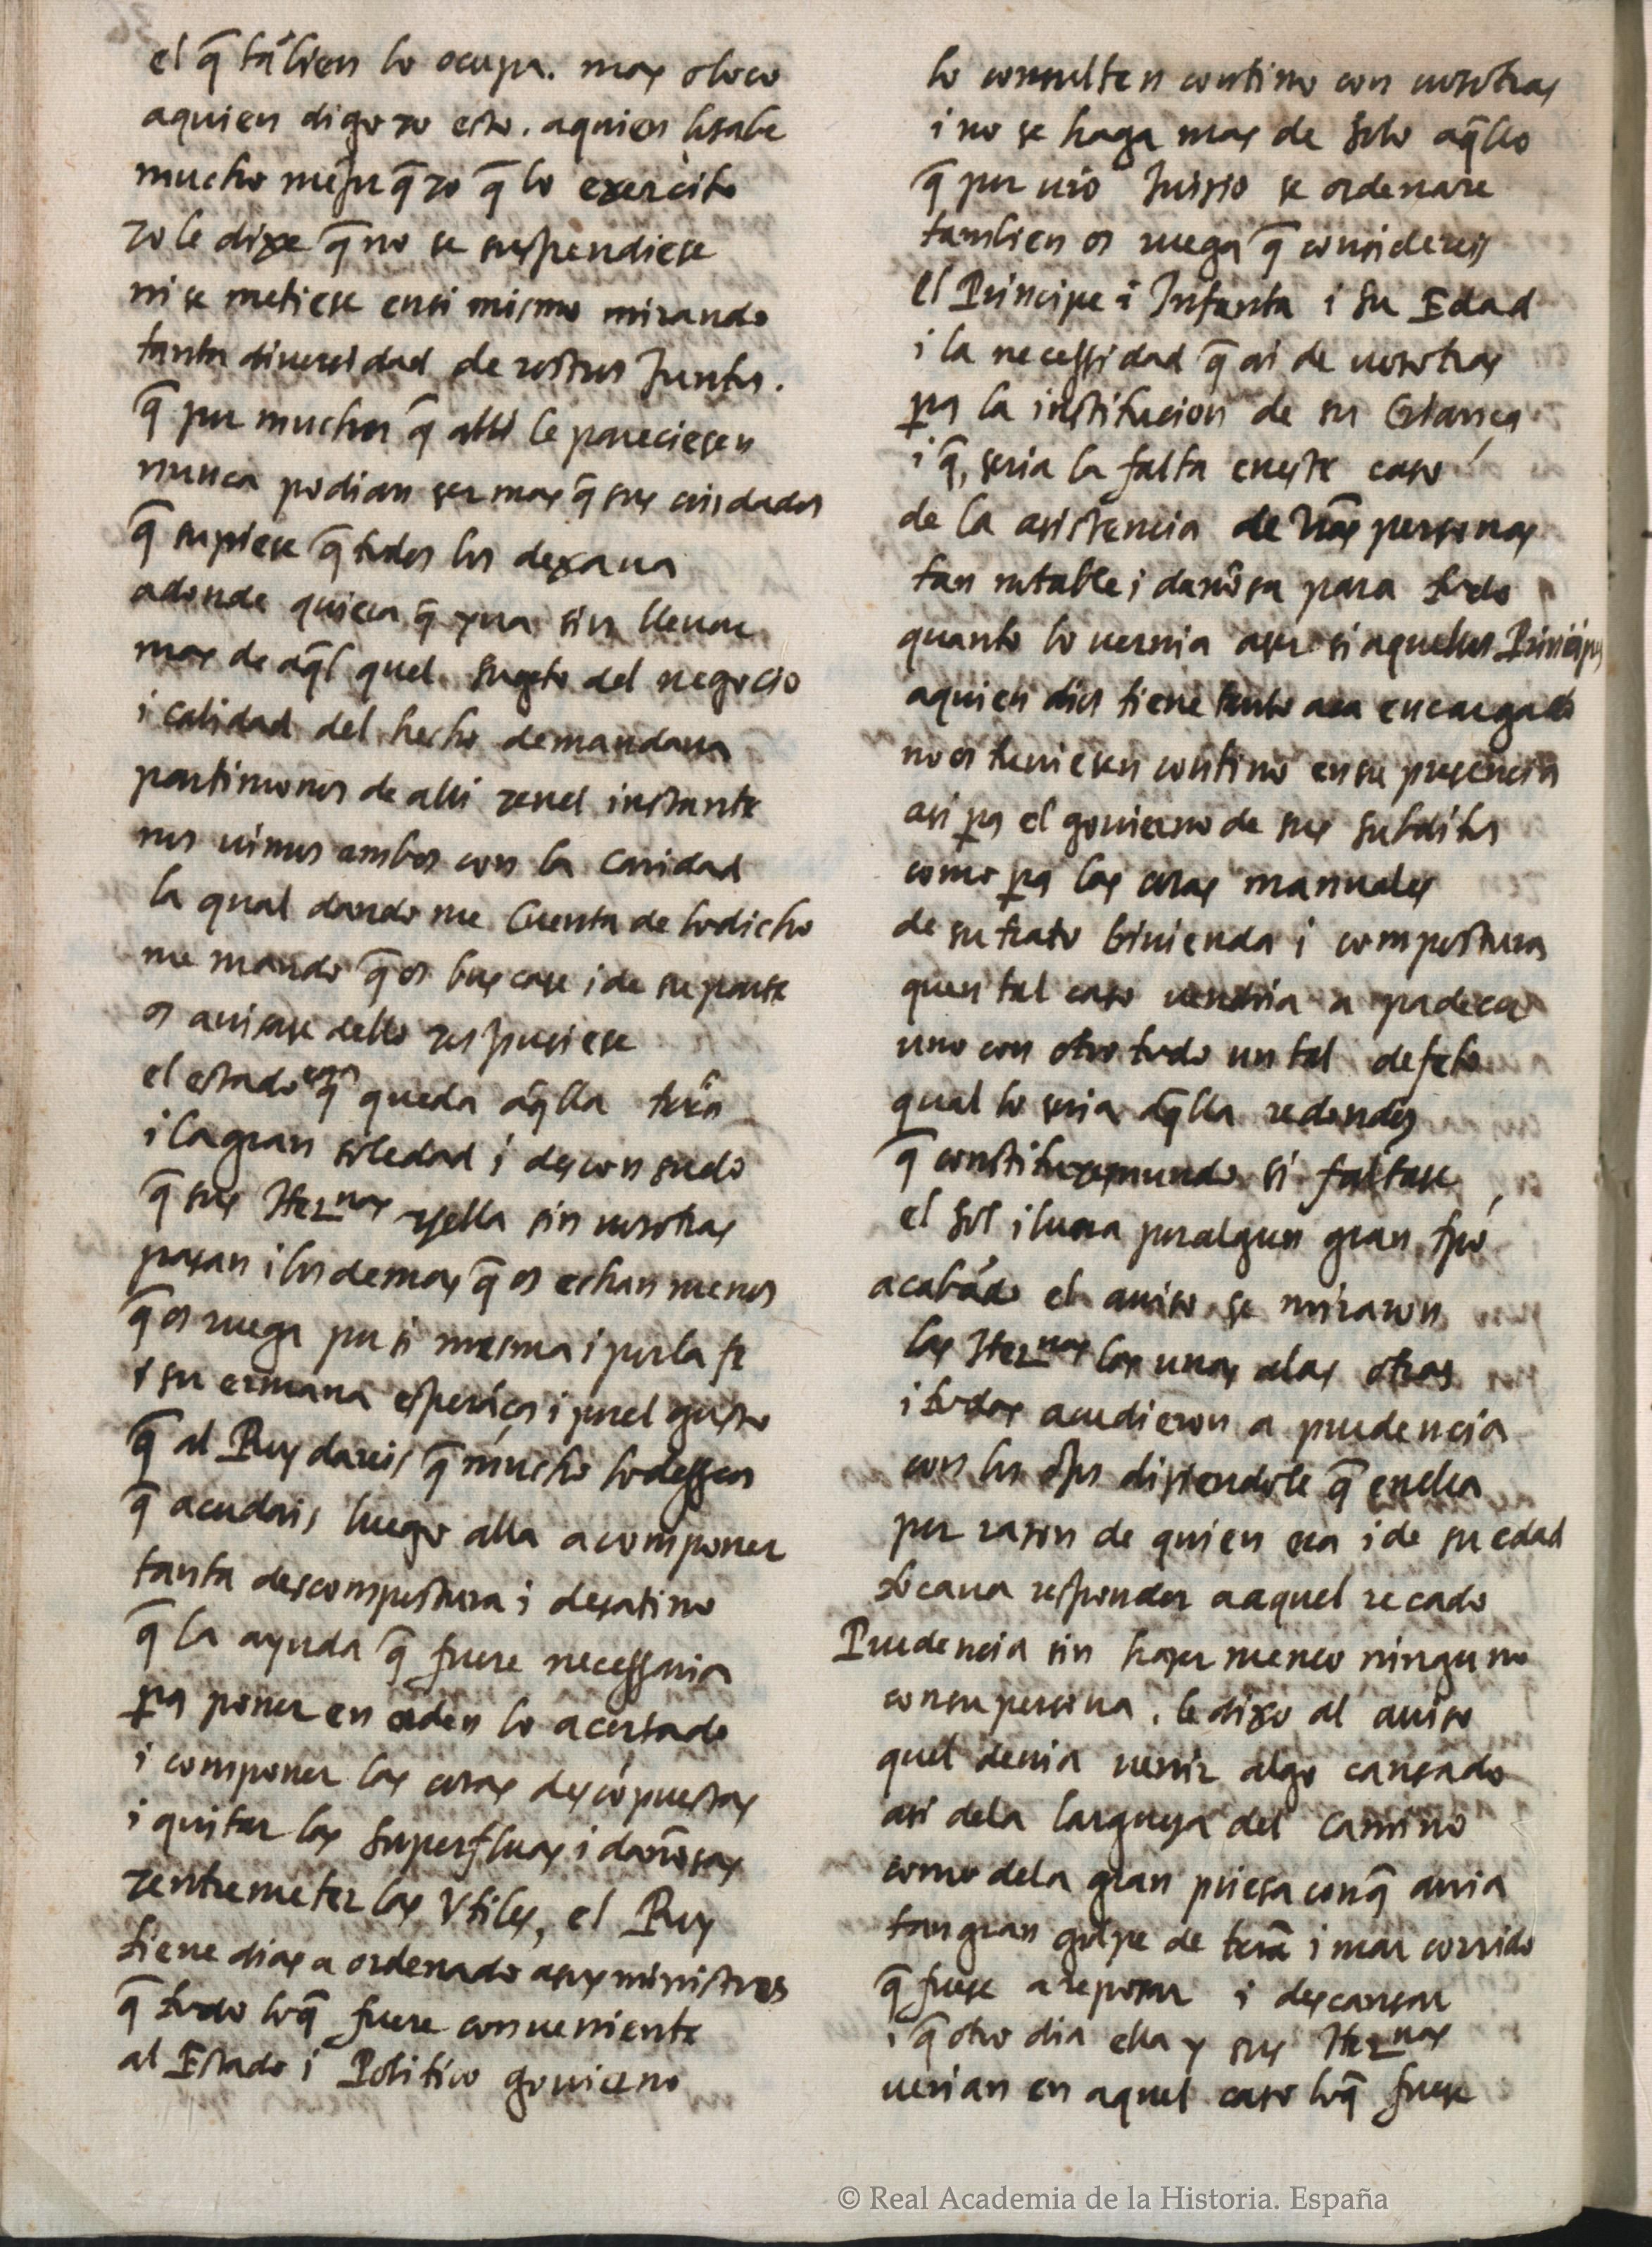 el q̃ tã bien lo ocupa. mas o loco
aquien digo yo esto. aquien lo sabe
mucho mejur q̃ yo q̃ lo exercito
yo le dixe q̃ no se suspendiese
ni se metiese en si mismo mirando
tanta diuersidad de rostros Juntos.
q̃ por muchos q̃ alli le pareciesen
nunca podian ser mas q̃ sus cuidados
q̃ supiese q̃ todos los dexaua
adonde quiera q̃ yua sin lleuar
mas de aq̃l quel sugeto del negocio
i calidad del hecho demandaua
partimonos de alli yenel instante
nos uimos ambos con la Caridad
la qual dandome Cuenta de lo dicho
me mando q̃ os buscase i de su parte
os auisase dello yos pusiese
el estado en q̃ queda aq̃lla terã
i la gran soledad i desconsuelo
q̃ sus Her.nas yella sin uosotras
pasan i los demas q̃ os echan menos
q̃ os ruega por si mesma i por la fe
i su ermana esperãça i por el gusto
q̃ al Rey dareis q̃ mucho lo dessea
q̃ acudais luego alla a componer
tanta descompostura i desatino
q̃ la ayuda q̃ fuere necessaria
pa poner en orden lo acertado
i componer las cosas descõpuestas
i quitar las superfluas i dañosas
yentremeter las Vtiles, el Rey
tiene dias a ordenado asus ministros
q̃ todo loq̃ fuere conueniente
al Estado i Politico gouierno
lo consulten contino con uosotras
i no se haga mas de solo aq̃llo
q̃ por uro Juisio se ordenare
tambien os ruega q̃ considereis
el Principe i Infanta i su Edad
i la necessidad q̃ ai de uosotras
pa la institucion de su Criança
i q̃, seria la falta eneste caso
de la asistencia de Vras personas
tan notable i dañosa para todo
quanto lo uernia aser si aquellos Principes
aquien dios tiene tanto encargado
no os tuuiesen contino ensu presencia
asi pa el gouierno de sus subditos
como pa las cosas manuales
de su trato biuienda i compostura
quen tal caso uendria a padecer
uno con otro todo un tal defeto
qual lo seria aq̃lla redondez
q̃ constituye mundo si faltase
el Sol i luna por algun gran tpõ
acabãdo el auiso se miraron
las Her.nas las unas alas otras
i todas acudieron a prudencia
con los ojos disiendole q̃ enella
por rason de quien era i de su edad
tocaua responder aaquel recado
Prudencia sin hazer meneo ninguno
consu persona, le dixo al auiso
quel deuia uenir algo cansado
asi dela largueza del camino
como dela gran priesa conq̃ auia
tan gran golpe de terã i mar corrido
q̃ fuese a reposar i descansar
i q̃ otro dia ella y sus Her.nas
uerian en aquel caso loq̃ fuese
© Real Academia de la Historia. España